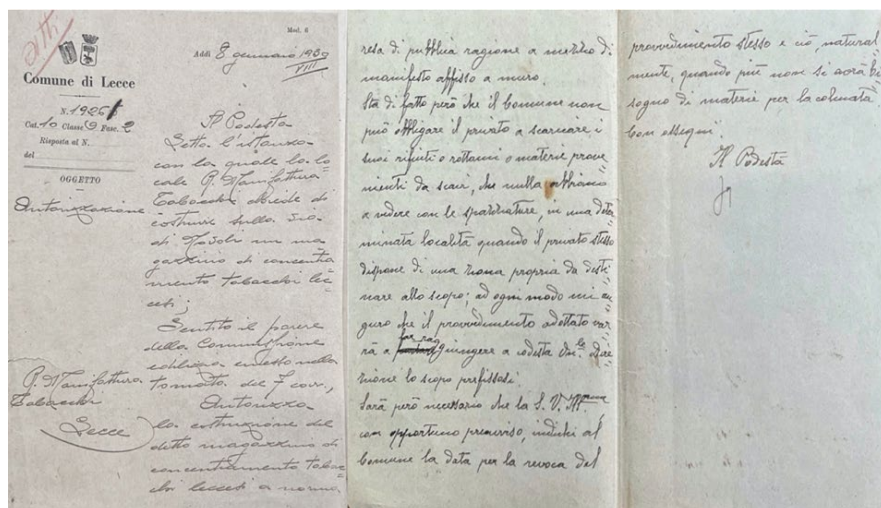 atti
Mod. 6
Addì 8 gennaio 1930
VIII
Comune di Lecce
N. 1926
Cat. 10 Classe 9 Fasc. 2
Risposta al N.
del
OGGETTO
Autorizzazione
R. Manifattura
Tabacchi
Lecce
Il Podestà
Letta l'istanza
con la quale la lo
cale R. Manifattura
Tabacchi chiede di
costruire sulla Via
di un ma
gazzino di concentra
mento tabacchi lec
cesi;
Sentito il parere
della Commissione
edilizia emesso nella
tornata del 7 corr.,
Autorizza
la costruzione del
detto magazzino di
concentramento tabac
chi leccesi a norma
resa di pubblica ragione a mezzo di
manifesto affisso a muro.
Sta di fatto però che il Comune non
può obbligare il privato a scaricare i
suoi rifiuti o rottami o materie prove
nienti da scavi, che nulla abbiano
a vedere con le spazzature, in una deter
minata località quando il privato stesso
dispone di una zona propria da desti
nare allo scopo; ad ogni modo mi au
guro che il provvedimento adottato var
rà a far raggiungere a codesta On.le Dire
zione lo scopo prefissosi.
Sarà però necessario che la S. V. Ill.ma
con opportuno preavviso, indichi al
Comune la data per la revoca del
provvedimento stesso e ciò, natural
mente, quando più non si avrà bi
sogno di materie per la colmata
Con ossequi.
Il Podestà